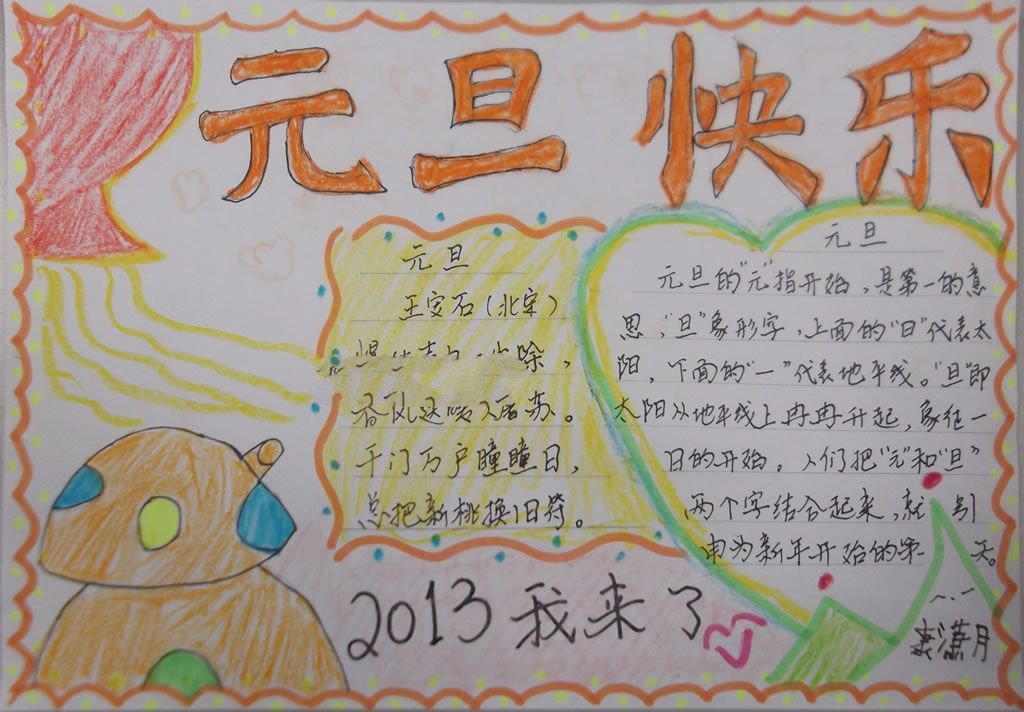 元旦快乐
元旦
王安石(北宋)
除,
春风送暖入屠苏。
千门万户瞳瞳日,
总把新桃换旧符。
元旦
元旦的"元"指开始,是第一的意
思,"旦"象形字,上面的"日"代表太
阳,下面的"一"代表地平线。"旦"即
太阳从地平线上冉冉升起,象征一
日的开始。人们把"元"和"旦"
两个字结合起来,就 引
申为新年开始的第一天。
2013我来了
潇月